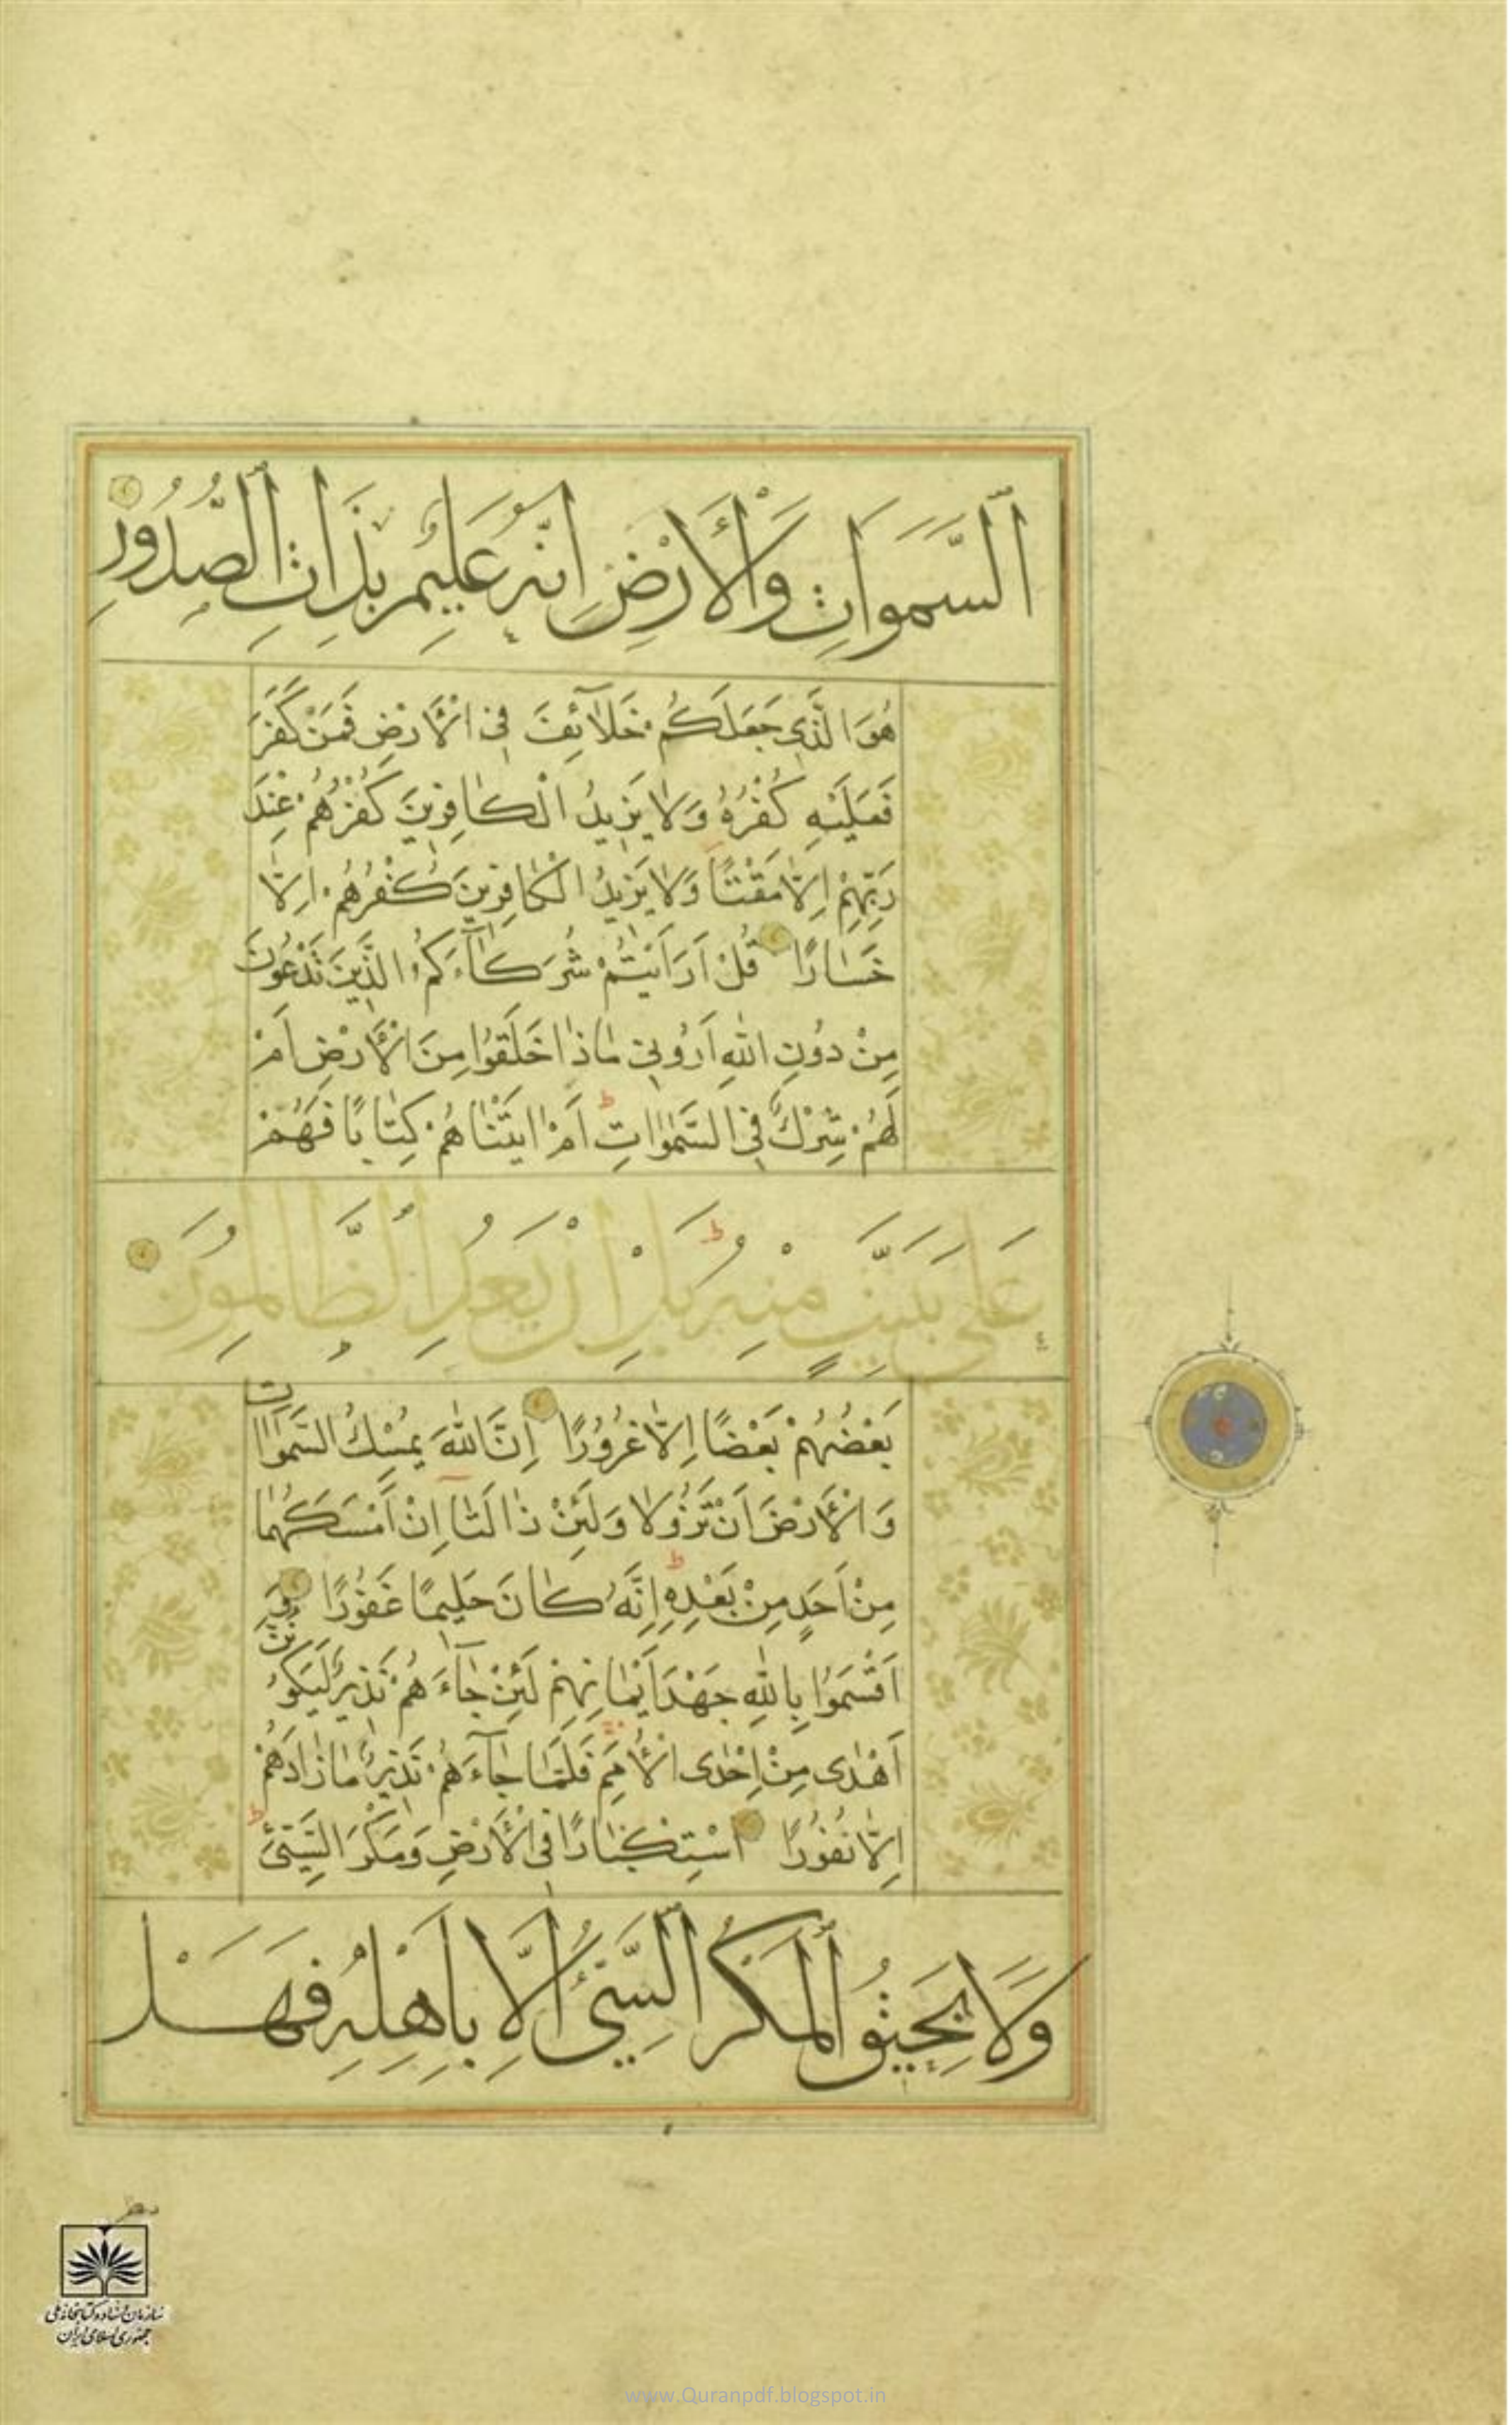 اَلسَّمٰوَاتِ وَالْاَرْضِ اِنَّهُ عَلِيمٌ بِذَاتِ الصُّدُورِ
هُوَ الَّذِي جَعَلَكُمْ خَلَآئِفَ فِي الْاَرْضِ فَمَنْ كَفَرَ
فَعَلَيْهِ كُفْرُهُ وَلَا يَزِيدُ الْكَافِرِينَ كُفْرُهُمْ عِنْدَ
رَبِّهِمْ اِلَّا مَقْتًا وَلَا يَزِيدُ الْكَافِرِينَ كُفْرُهُمْ اِلَّا
خَسَارًا قُلْ اَرَاَيْتُمْ شُرَكَآءَكُمُ الَّذِينَ تَدْعُونَ
مِنْ دُونِ اللّٰهِ اَرُونِي مَاذَا خَلَقُوا مِنَ الْاَرْضِ اَمْ
لَهُمْ شِرْكٌ فِي السَّمٰوَاتِ ط اَمْ اٰتَيْنَاهُمْ كِتَابًا فَهُمْ
عَلَى بَيِّنَتٍ مِنْهُ ط بَلْ اِنْ يَعِدُ الظَّالِمُونَ
بَعْضُهُمْ بَعْضًا اِلَّا غُرُورًا اِنَّ اللّٰهَ يُمْسِكُ السَّمٰوَاتِ
وَالْاَرْضَ اَنْ تَزُولَا وَلَئِنْ زَالَتَآ اِنْ اَمْسَكَهُمَا
مِنْ اَحَدٍ مِنْ بَعْدِهِ ط اِنَّهُ كَانَ حَلِيمًا غَفُورًا وَ
اَقْسَمُوا بِاللّٰهِ جَهْدَ اَيْمَانِهِمْ لَئِنْ جَآءَهُمْ نَذِيرٌ لَيَكُونُنَّ
اَهْدٰى مِنْ اِحْدَى الْاُمَمِ فَلَمَّا جَآءَهُمْ نَذِيرٌ مَا زَادَهُمْ
اِلَّا نُفُورًا اسْتِكْبَارًا فِي الْاَرْضِ وَمَكْرَ السَّيِّئِ ط
وَلَا يَحِيقُ الْمَكْرُ السَّيِّئُ اِلَّا بِاَهْلِهِ فَهَلْ
سازمان اسناد و کتابخانه ملی
جمهوری اسلامی ایران
www.Quranpdf.blogspot.in